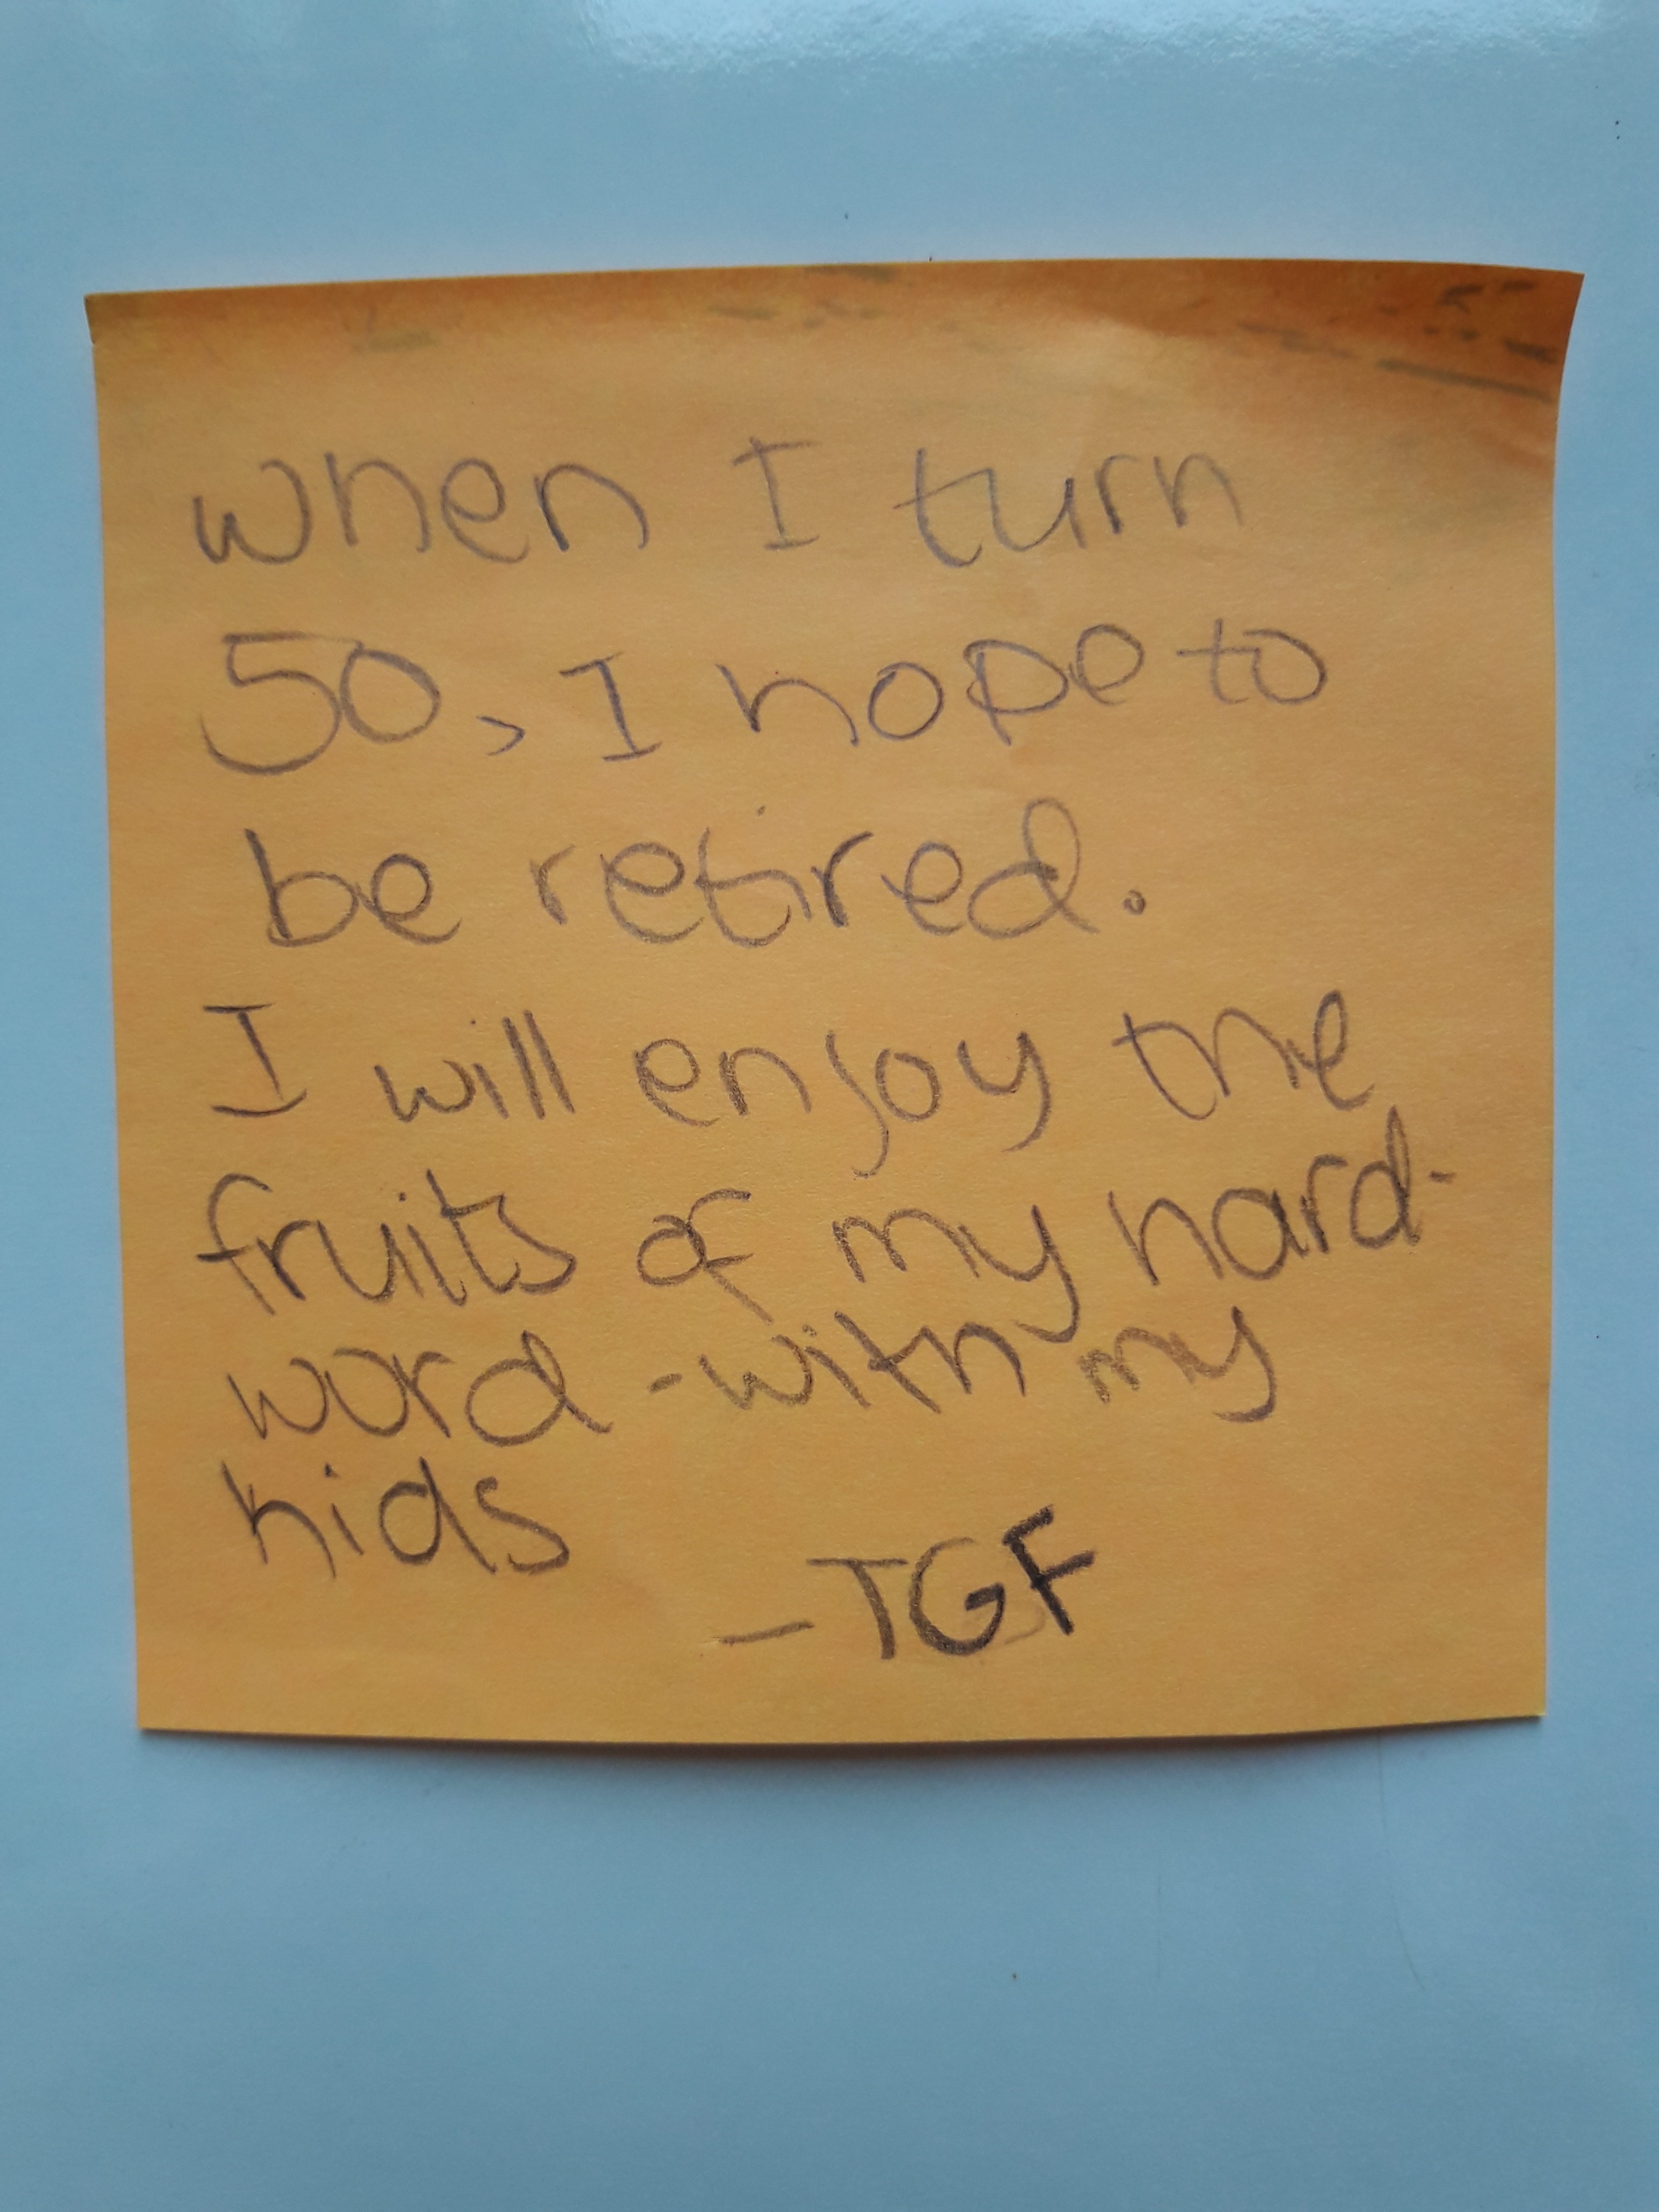 when I turn
50, I hope to
be retired.
I will enjoy the
fruits of my hard-
word - with my
kids
- TGF